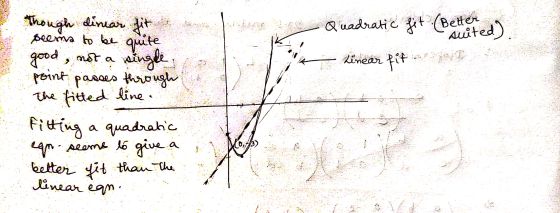 Though linear fit
seems to be quite
good, not a single
point passes through
the fitted line.
Fitting a quadratic
eqn. seems to give a
better fit than the
linear eqn.
Quadratic fit (Better
suited).
Linear fit
(0,-3)